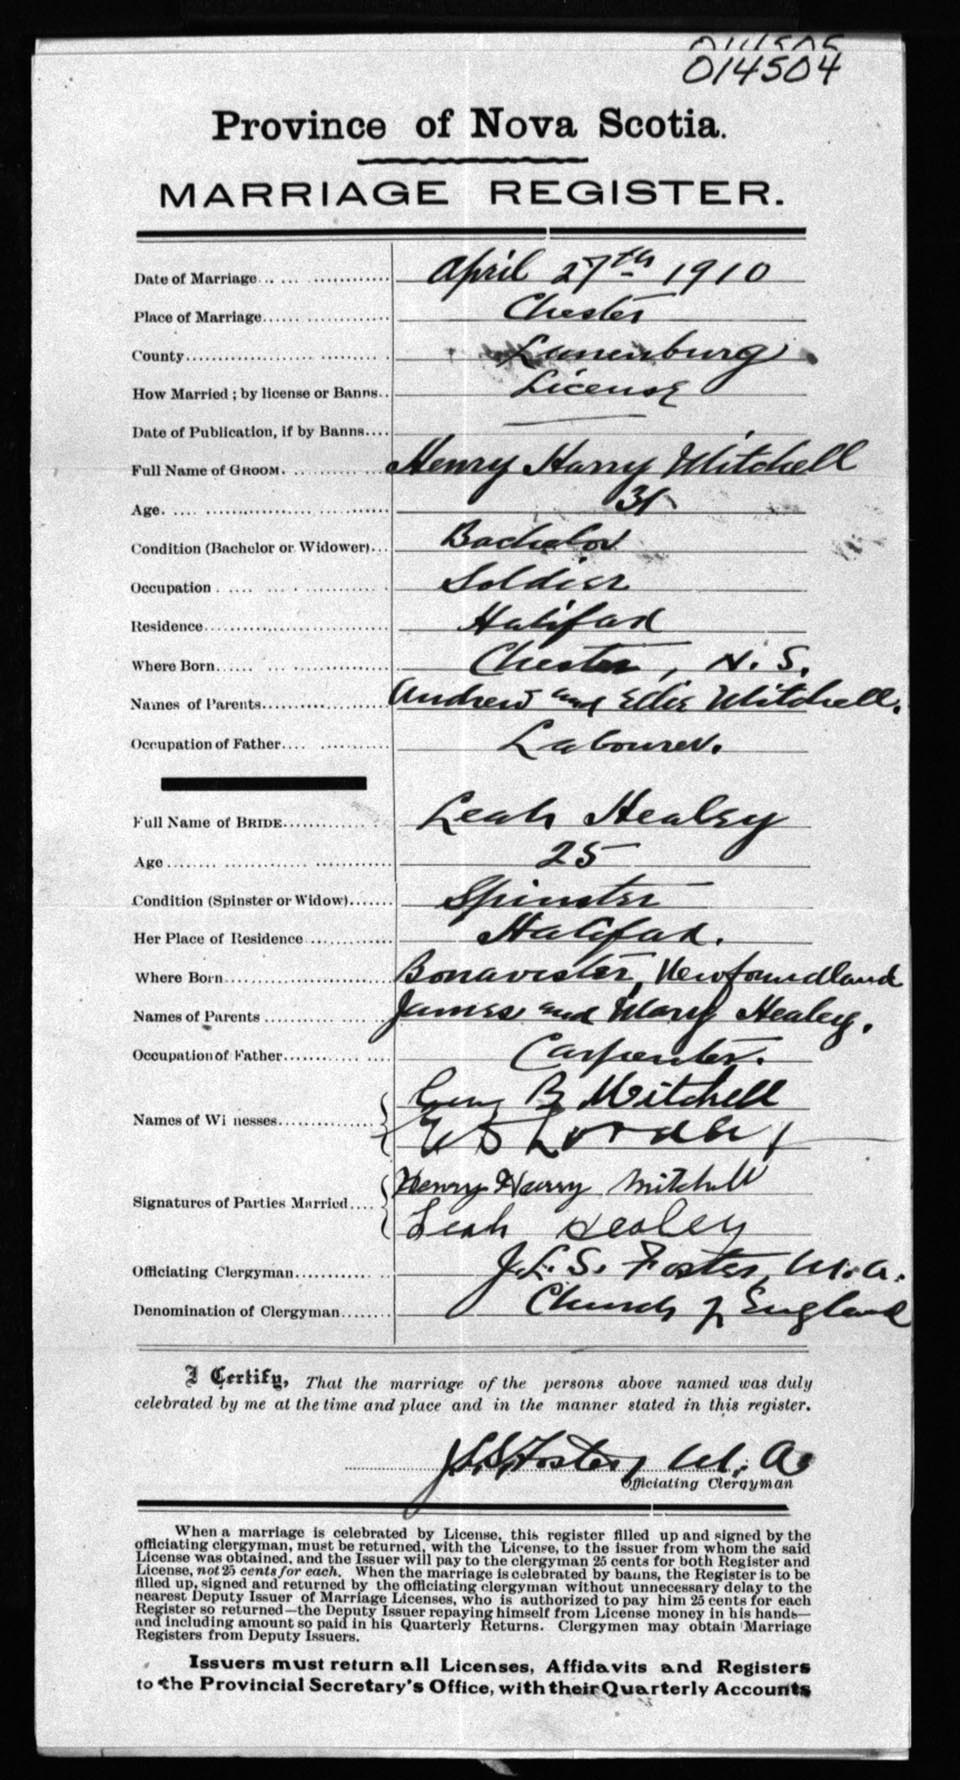 014504
Province of Nova Scotia.
MARRIAGE REGISTER.
Date of Marriage April 27th 1910
Place of Marriage Chester
County Lunenburg
How Married; by license or Banns License
Date of Publication, if by Banns
Full Name of GROOM. Henry Harry Mitchell
Age. 31
Condition (Bachelor or Widower) Bachelor
Occupation Soldier
Residence Halifax
Where Born Chester, N. S.
Names of Parents Andrew and Mitchell.
Occupation of Father Labourer.
Full Name of BRIDE Leah Healey
Age 25
Condition (Spinster or Widow) Spinster
Her Place of Residence Halifax.
Where Born Bonavister, Newfoundland
Names of Parents James and Mary Healey.
Occupation of Father Carpenter.
Names of Wi nesses B Mitchell
Signatures of Parties Married Henry Harry Mitchell
Leah Healey
Officiating Clergyman J. L. S. Foster, M. A.
Denomination of Clergyman Church of England
I Certify, That the marriage of the persons above named was duly
celebrated by me at the time and place and in the manner stated in this register.
J. L. S. Foster, M. A.
Officiating Clergyman
When a marriage is celebrated by License, this register filled up and signed by the
officiating clergyman, must be returned, with the License, to the issuer from whom the said
License was obtained, and the Issuer will pay to the clergyman 25 cents for both Register and
License, not 25 cents for each. When the marriage is celebrated by banns, the Register is to be
filled up, signed and returned by the officiating clergyman without unnecessary delay to the
nearest Deputy Issuer of Marriage Licenses, who is authorized to pay him 25 cents for each
Register so returned—the Deputy Issuer repaying himself from License money in his hands—
and including amount so paid in his Quarterly Returns. Clergymen may obtain Marriage
Registers from Deputy Issuers.
Issuers must return all Licenses, Affidavits and Registers
to the Provincial Secretary's Office, with their Quarterly Accounts